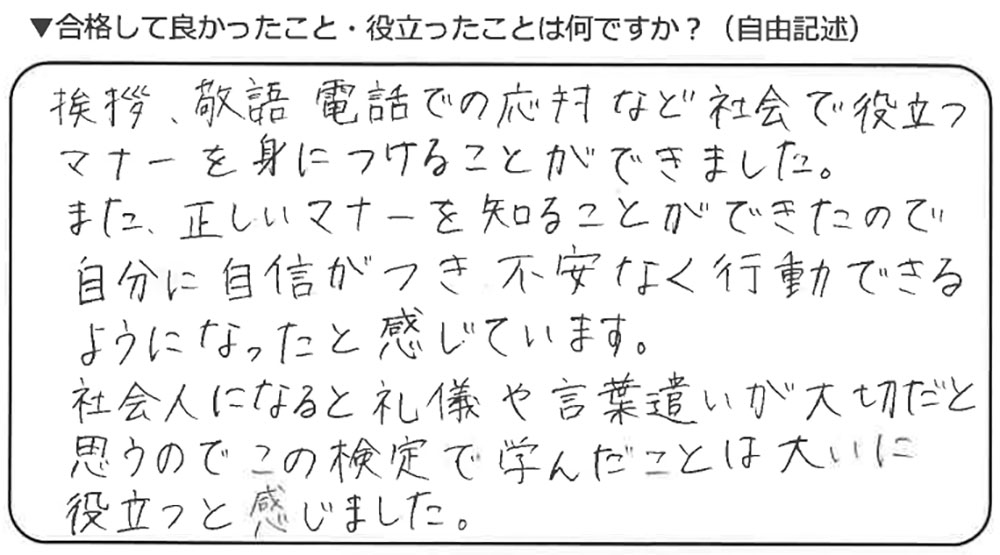 ▼合格して良かったこと・役立ったことは何ですか？（自由記述）
挨拶、敬語 電話での応対 など 社会で役立つ
マナーを身につけることができました。
また、正しいマナーを知ることができたので
自分に自信がつき 不安なく行動できる
ようになったと感じています。
社会人になると礼儀や言葉遣いが大切だと
思うのでこの検定で学んだことは大いに
役立つと感じました。